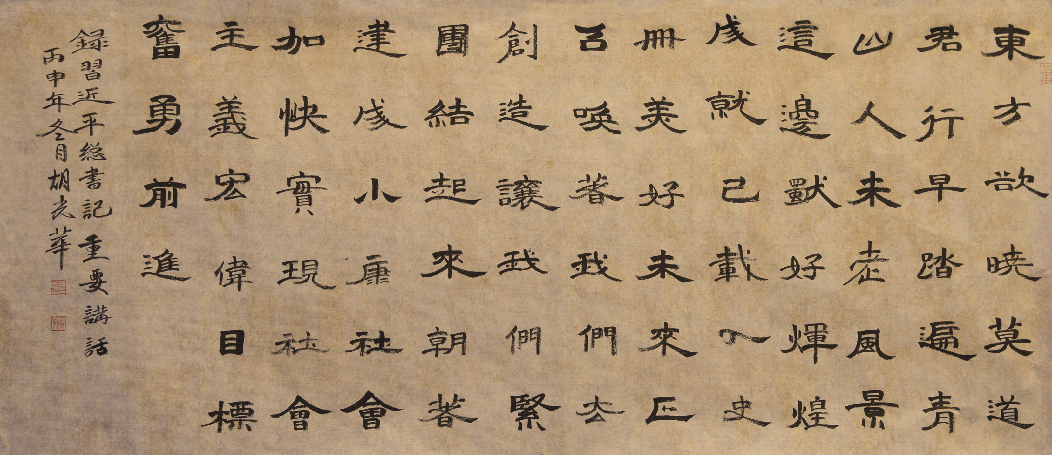 東方欲曉莫道
君行早踏遍青
山人未老風景
這邊獸好輝煌
成就已載入史
冊美好未來正
召喚著我們去
創造讓我們緊
團結起來朝著
建成小康社會
加快實現社會
主義宏偉目標
奮勇前進
録習近平總書記重要講話
丙申年冬月胡光華